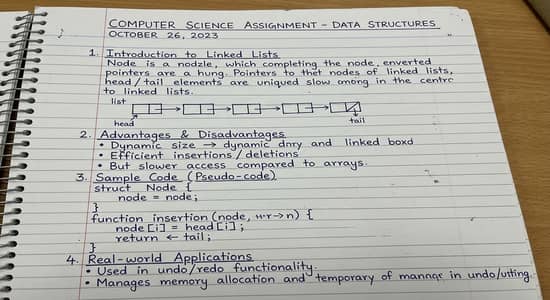 COMPUTER SCIENCE ASSIGNMENT - DATA STRUCTURES
OCTOBER 26, 2023
1. Introduction to Linked Lists
Node is a nodzle, which completing the node, enverted
pointers are a hung. Pointers to thet nodes of linked lists,
head/tail elements are uniqued slow among in the centre
to linked lists.
list
head
tail
2. Advantages & Disadvantages
• Dynamic size → dynamic dnry and linked boxd
• Efficient insertions/deletions
• But slower access compared to arrays.
3. Sample Code (Pseudo-code)
struct Node {
node = node;
}
function insertion (node, →n) {
node [i] = head [i];
return ← tail;
}
4. Real-world Applications
• Used in undo/redo functionality.
• Manages memory allocation and temporary of in undo/